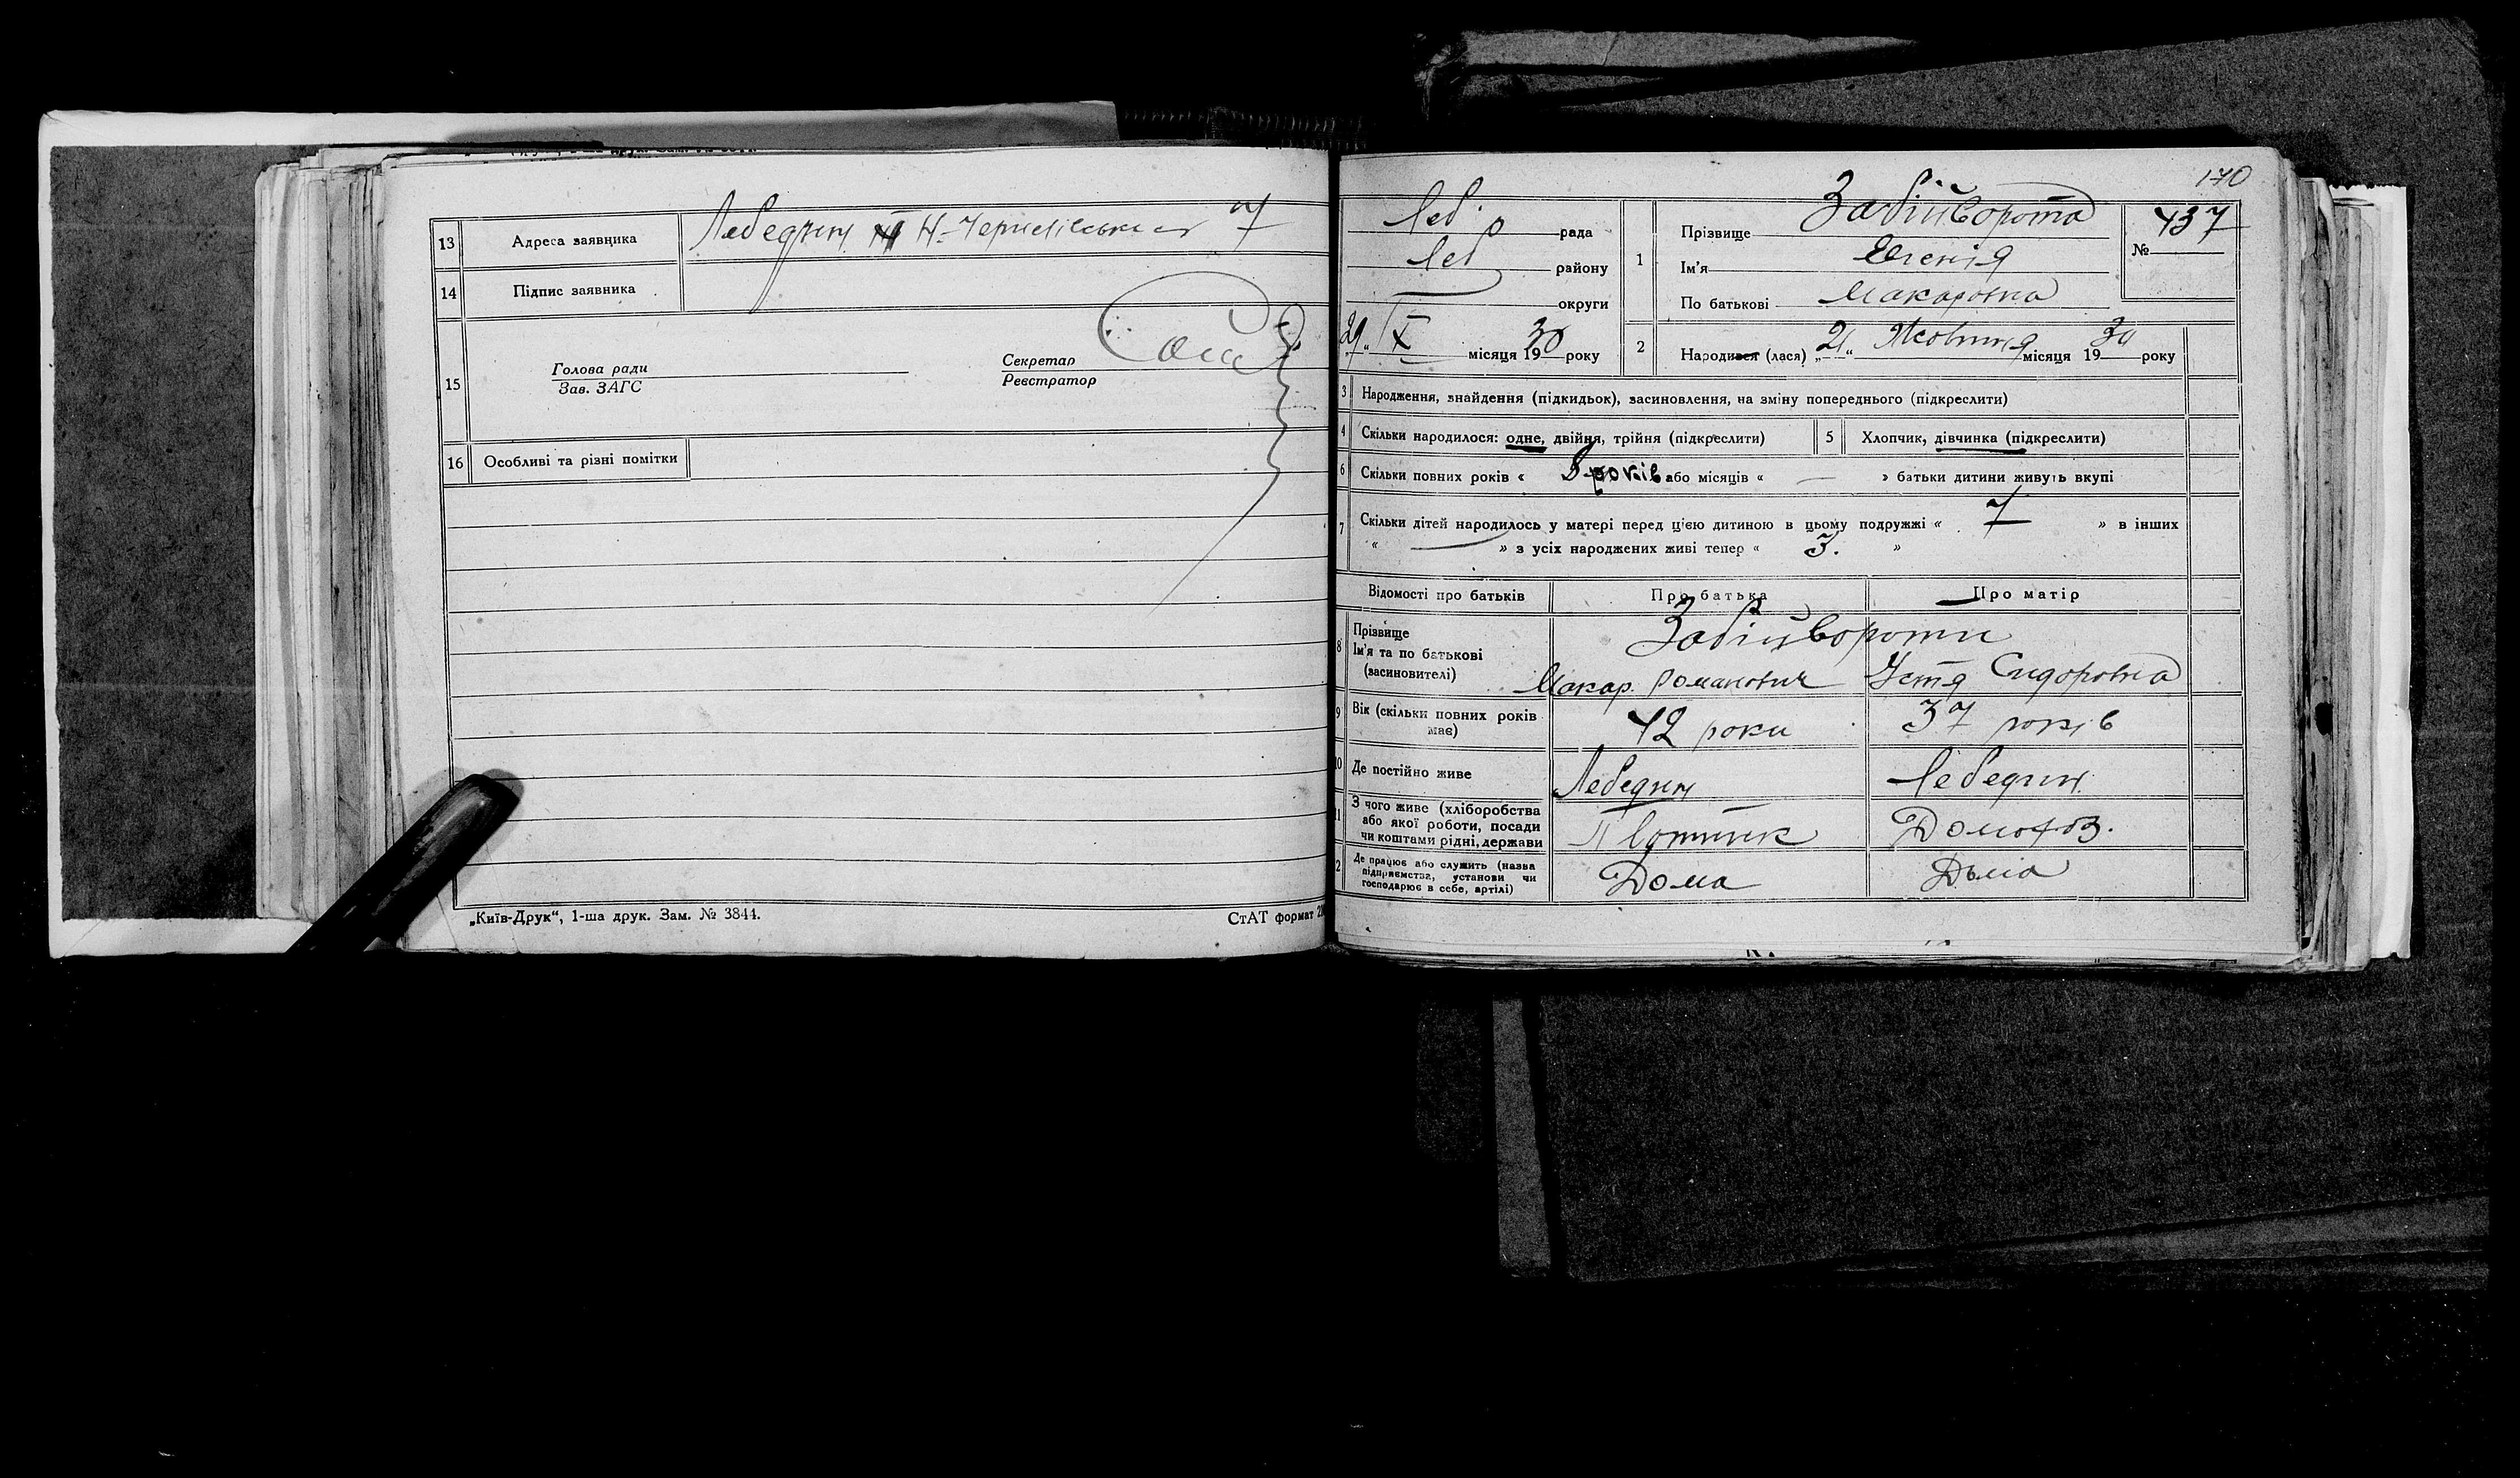 13 Адреса заявника Лебедин Н-Чернеківська 7
14 Підпис заявника
15 Голова ради
Зав. ЗАГС
Секретар
Реєстратор
16 Особливі та різні помітки
„Київ-Друк“, 1-ша друк. Зам. № 3844.
СтАТ формат
170
Леб. рада
Леб району
округи
29 „ X місяця 1930 року
1 Прізвище Забійворота
Ім'я Євгенія
По батькові Макаровна
№ 437
2 Народився (лася) „21“ Жовтня місяця 1930 року
3 Народження, знайдення (підкидьок), засиновлення, на зміну попереднього (підкреслити)
4 Скільки народилося: одне, двійня, трійня (підкреслити) 5 Хлопчик, дівчинка (підкреслити)
6 Скільки повних років « 8 років або місяців « — » батьки дитини живуть вкупі
7 Скільки дітей народилось у матері перед цією дитиною в цьому подружжі « 7 » в інших
« — » з усіх народжених живі тепер « 3. »
Відомості про батьків Про батька Про матір
8 Прізвище
Ім'я та по батькові
(засиновителі)
Забійвороти
Макар. Романович Устя Сидоровна
9 Вік (скільки повних років має) 42 роки 37 років
10 Де постійно живе Лебедин Лебедин
11 З чого живе (хліборобства
або якої роботи, посади
чи коштами рідні, держави
Плотник Домохоз.
12 Де працює або служить (назва
підприємства, установи чи
господарює в себе, артілі)
Дома Дома